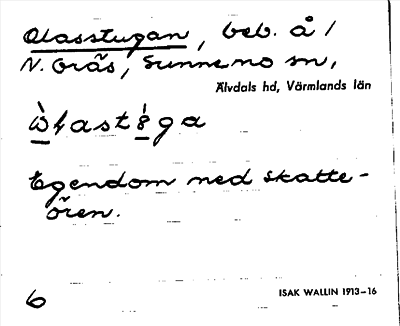 Olasstugan, beb. å /
N. Örås, Sunnemo sn,
Älvdals hd, Värmlands län
Egendom med skatte-
ören.
6
ISAK WALLIN 1913–16